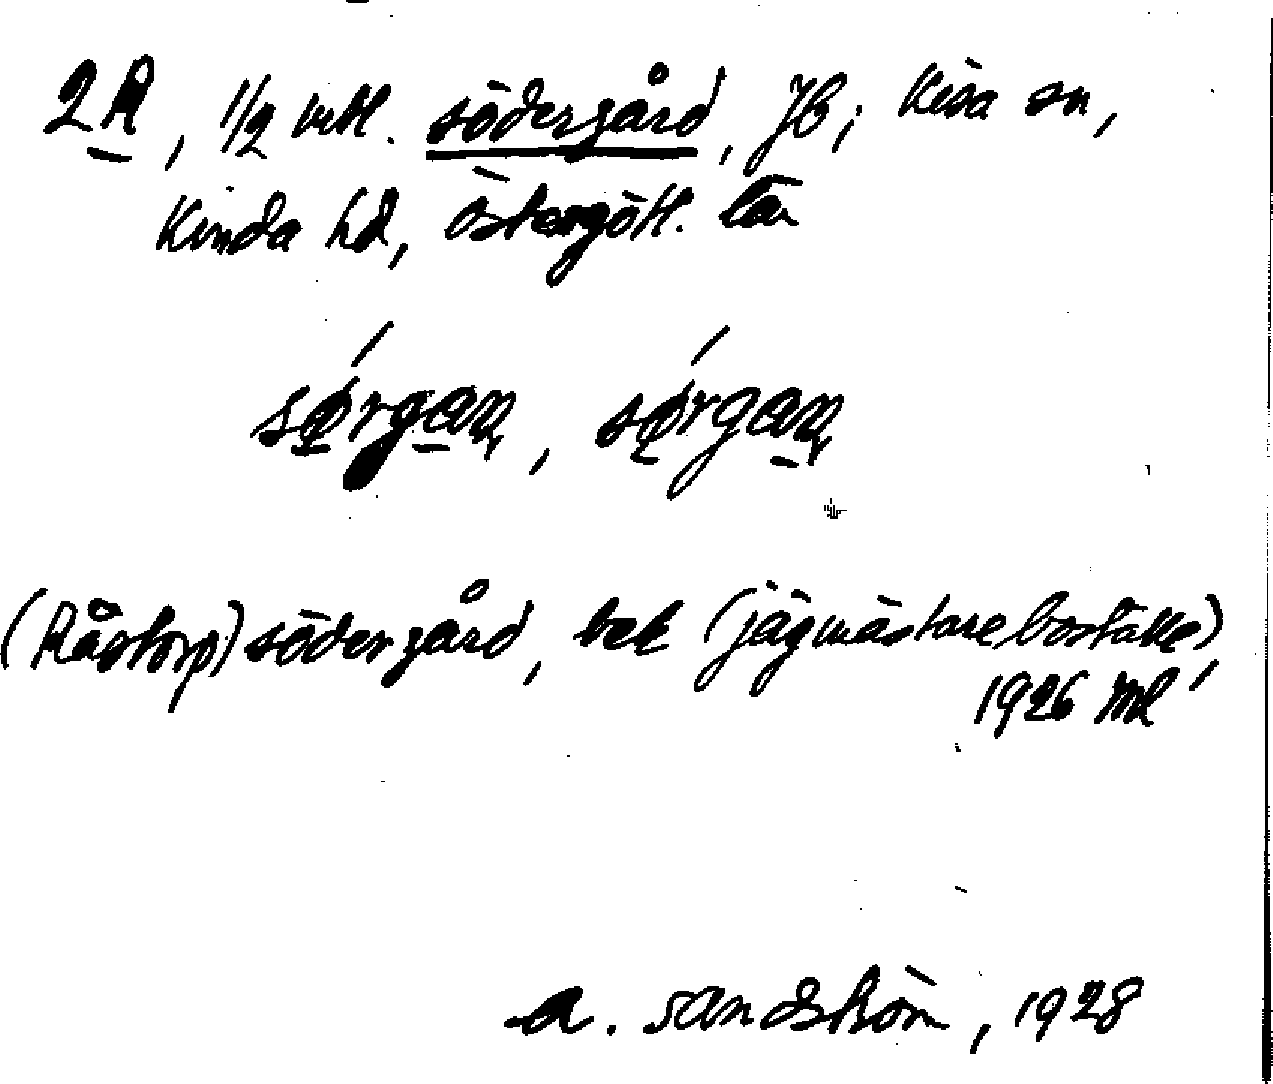 2R, 1/2 mtl. södergård, JB; Kisa sn,
Kinda hd, östergötl. län
sǿrgan̥, sǿrgan̥
(Råstorp) södergård, bek (jägmästareboställe),
1926 ml
A. Sandström, 1928